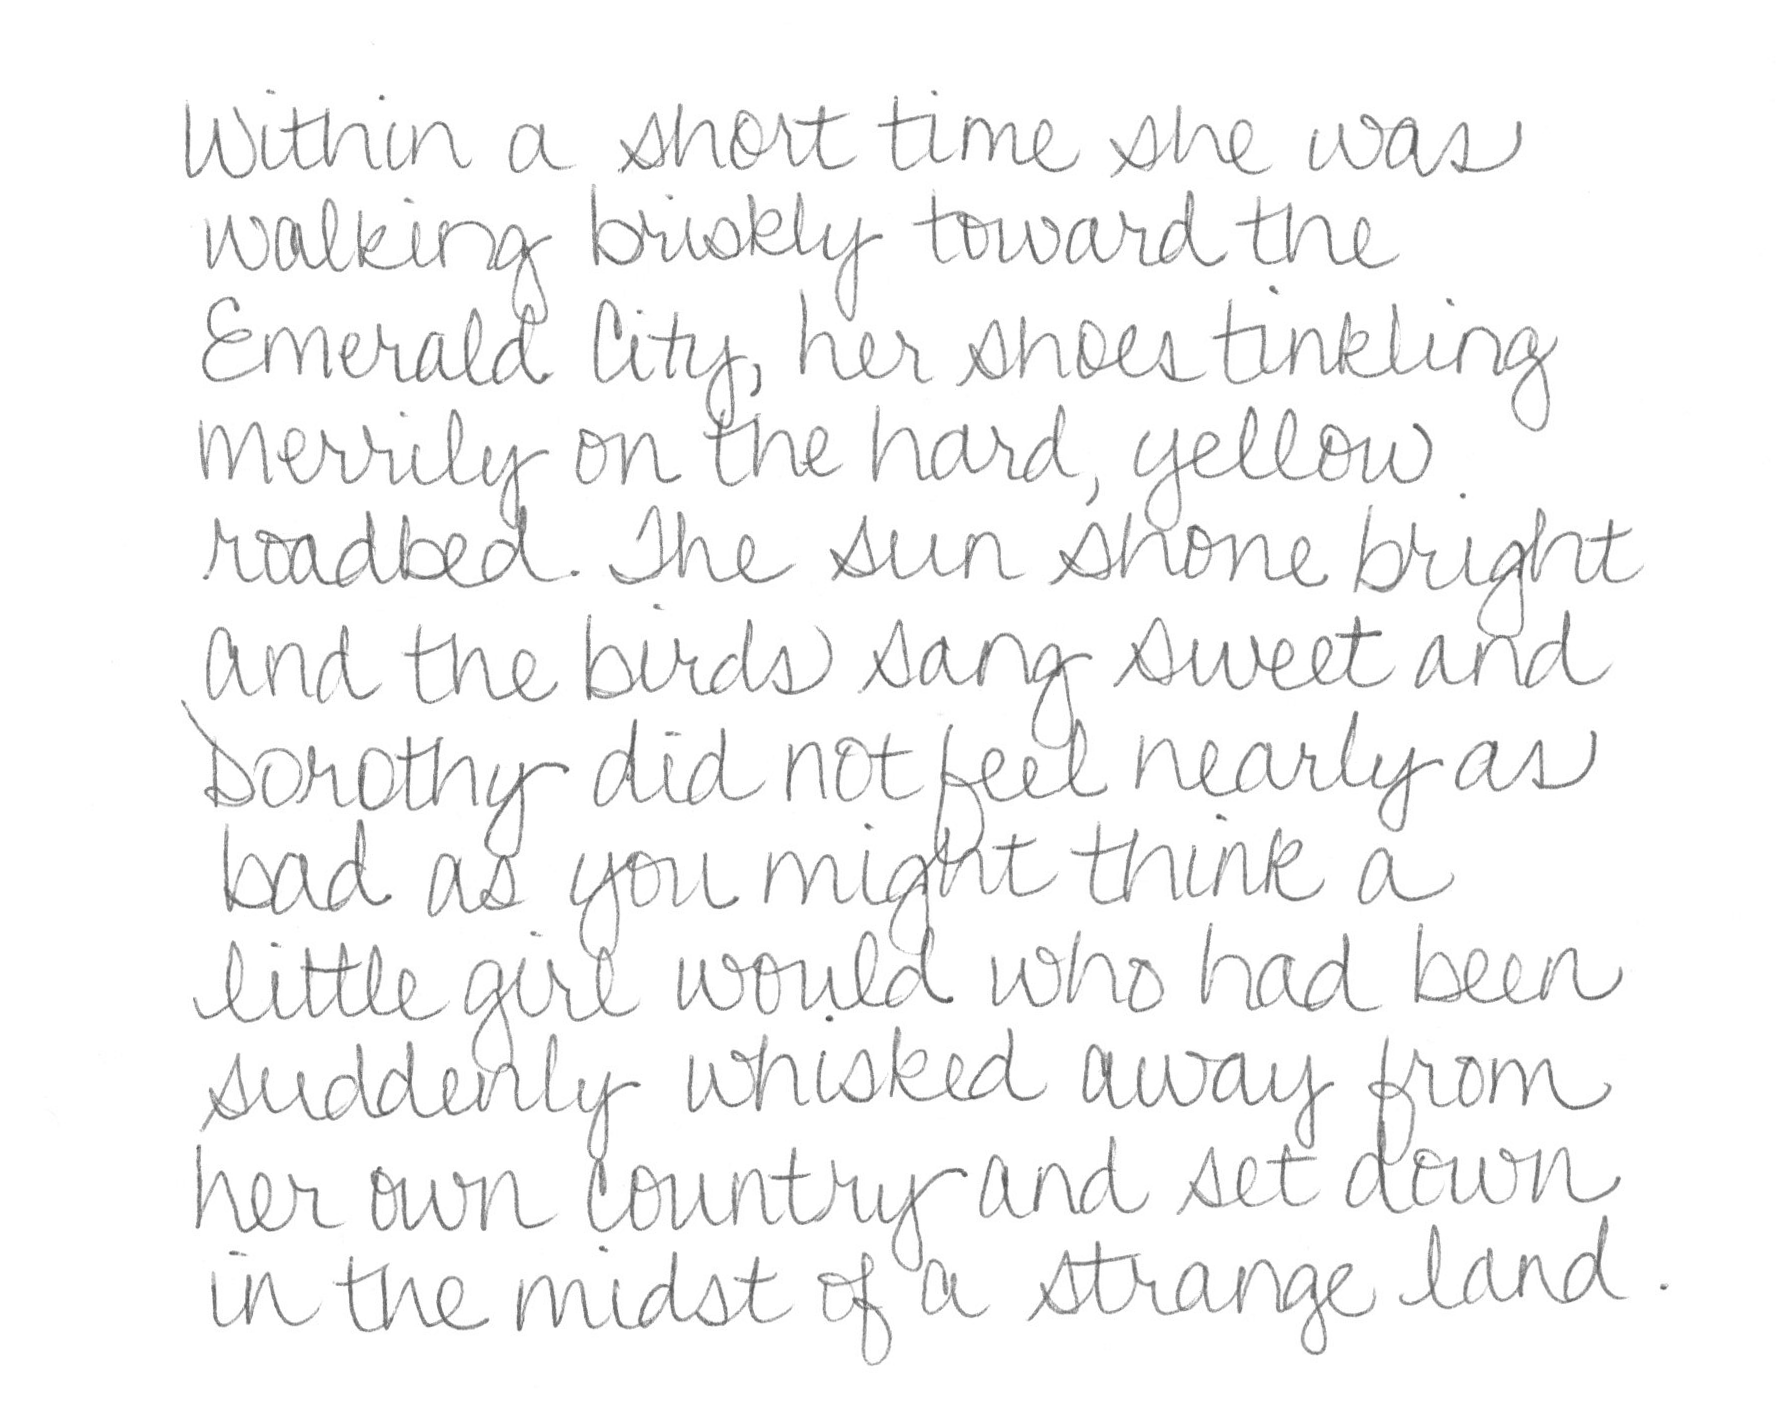 Within a short time she was
walking briskly toward the
Emerald City, her shoes tinkling
merrily on the hard, yellow
roadbed. The sun shone bright
and the birds sang sweet and
Dorothy did not feel nearly as
bad as you might think a
little girl would who had been
suddenly whisked away from
her own country and set down
in the midst of a strange land.